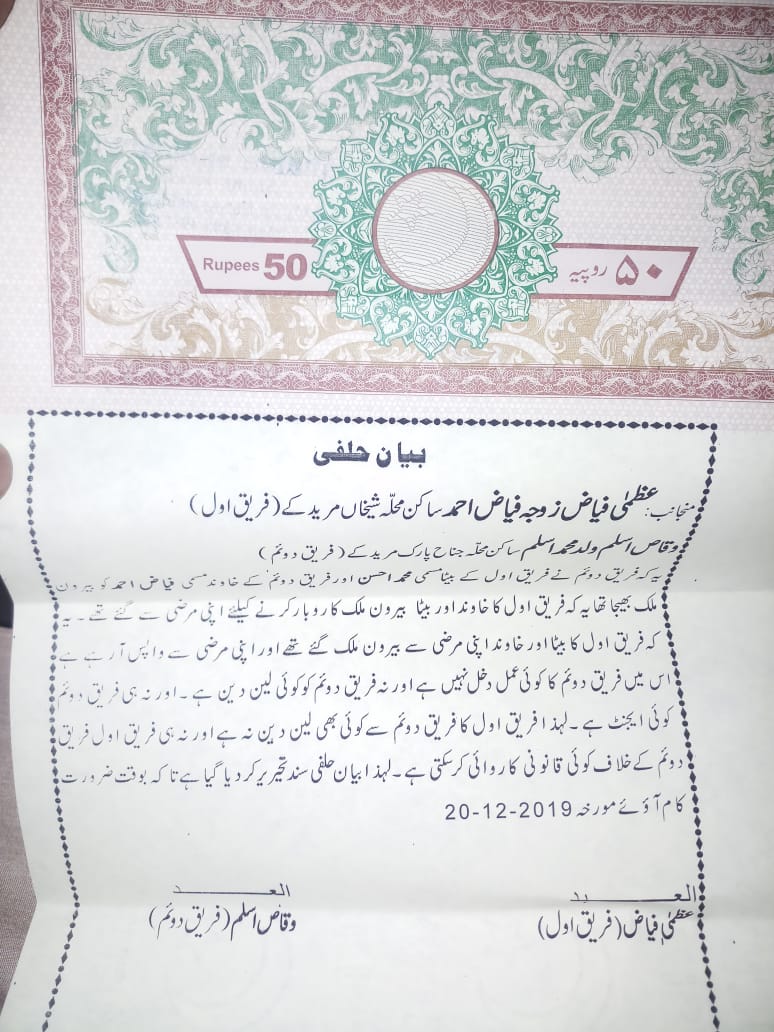 Rupees 50
۵۰ روپیہ
بیان حلفی
منجانب: عظمیٰ فیاض زوجہ فیاض احمد ساکن محلّہ شیخاں مرید کے (فریق اول)
وقاص اسلم ولد محمد اسلم ساکن محلہ جناح پارک مرید کے (فریق دوئم)
یہ کہ فریق دوئم نے فریق اول کے بیٹا مسمی محمد احسن اور فریق دوئم کے خاوند مسمی فیاض احمد کو بیرون
ملک بھیجا تھا یہ کہ فریق اول کا خاوند اور بیٹا بیرون ملک کاروبار کرنے کیلئے اپنی مرضی سے گئے تھے۔ یہ
کہ فریق اول کا بیٹا اور خاوند اپنی مرضی سے بیرون ملک گئے تھے اور اپنی مرضی سے واپس آرہے ہے
اس میں فریق دوئم کا کوئی عمل دخل نہیں ہے اور نہ فریق دوئم کو کوئی لین دین ہے۔ اور نہ ہی فریق دوئم
کوئی ایجنٹ ہے۔ لہذا فریق اول کا فریق دوئم سے کوئی بھی لین دین نہ ہے اور نہ ہی فریق اول فریق
دوئم کے خلاف کوئی قانونی کاروائی کرسکتی ہے۔ لہذا بیان حلفی سند تحریر کر دیا گیا ہے تا کہ بوقت ضرورت
کام آؤئے مورخہ 20-12-2019
العبد العبد
عظمیٰ فیاض (فریق اول) وقاص اسلم (فریق دوئم)